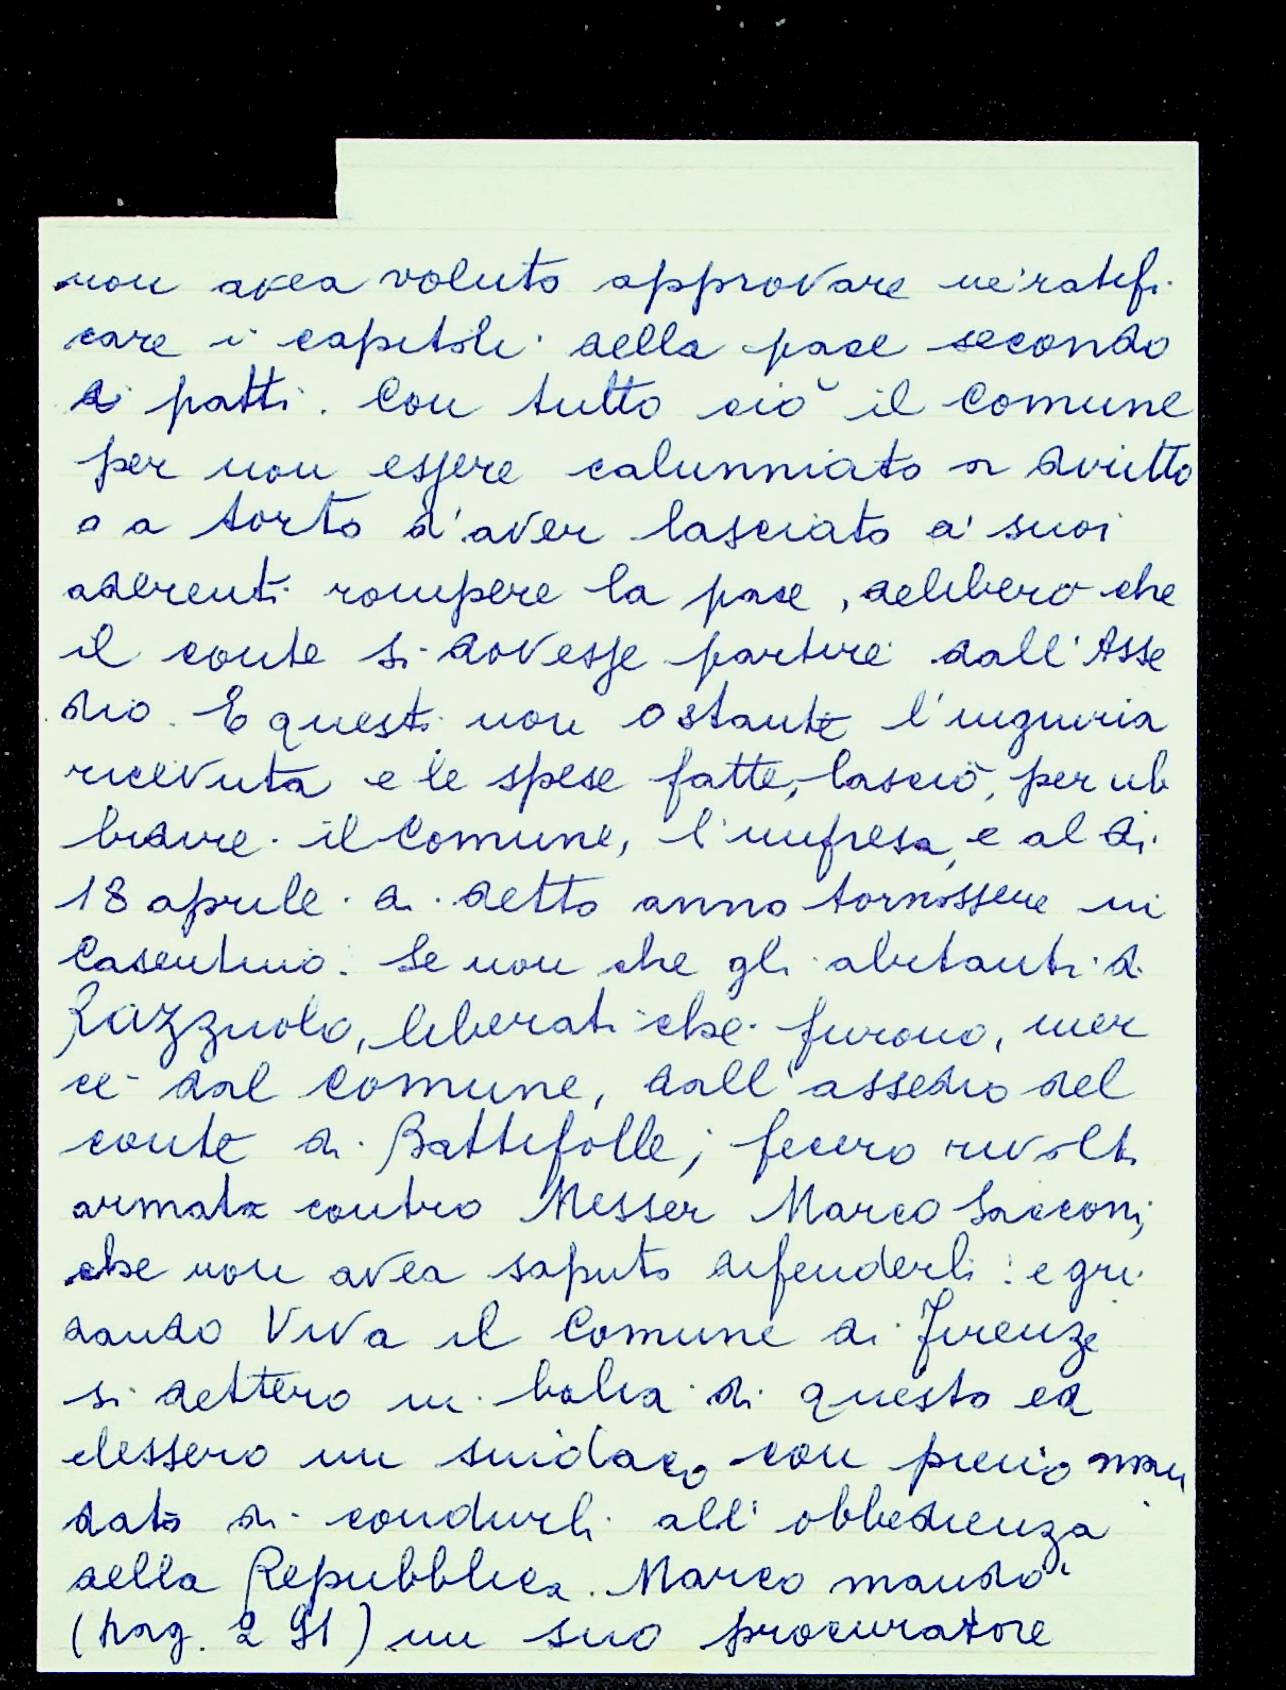 non avea voluto approvare ne' ratifi
care i capitoli della pace secondo
i patti. Con tutto ciò il Comune
per non essere calunniato a dritto
o a torto d'aver lasciato a' suoi
aderenti rompere la pace, deliberò che
il conte si dovesse partire dall'Asse
dio. E questi non ostante l'ingiuria
ricevuta e le spese fatte, lasciò, per ub
bidire il Comune, l'impresa, e al dì
18 aprile di detto anno tornossene in
Casentino. Se non che gli abitanti di
Razzuolo, liberati che furono, mer
cè dal Comune, dall'assedio del
conte di Battifolle; fecero rivolta
armata contro Messer Marco Sacconi,
che non avea saputo difenderli: e gri
dando Viva il Comune di Firenze
si dettero in balia di questo ed
elessero un sindaco con pieno man
dato di condurli all'obbedienza
della Repubblica. Marco mandò
(pag. 291) un suo procuratore